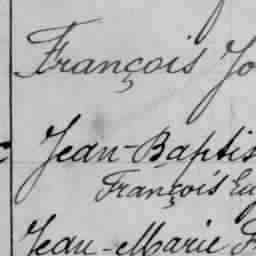 François Jo
Jean-Baptis
François Eu
Jean-Marie F